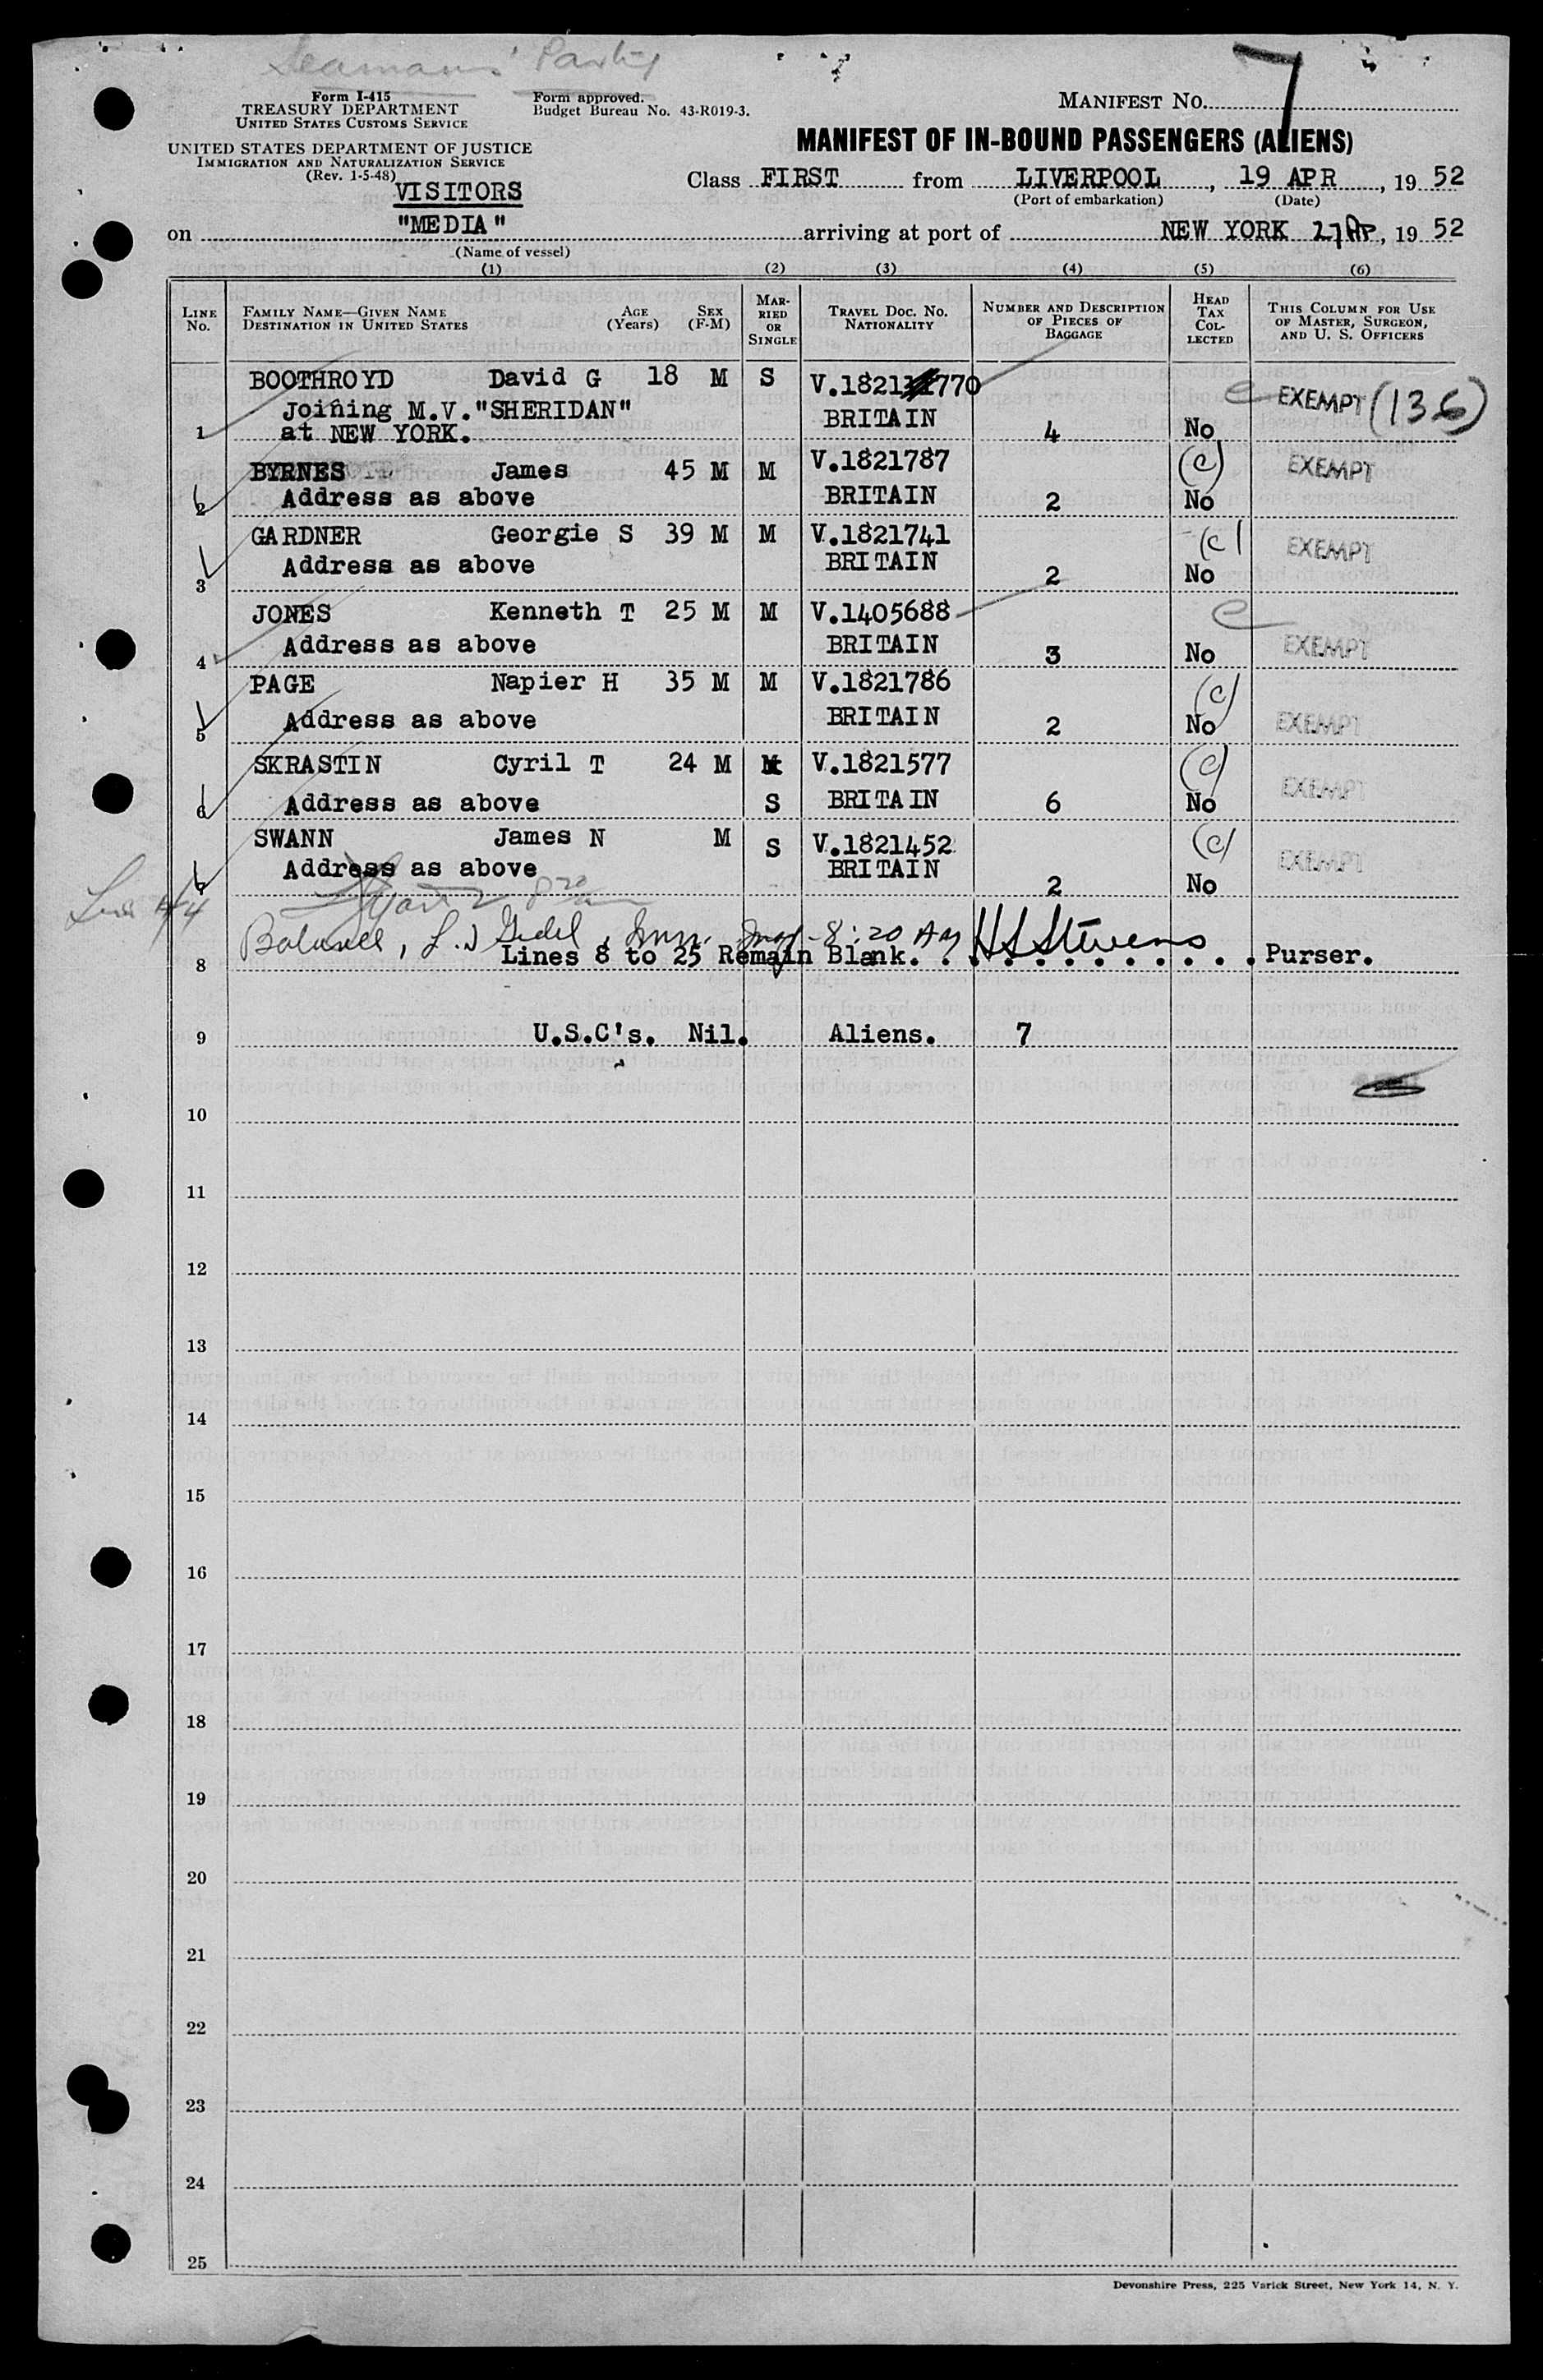 Seamans' Party
Form I-415
TREASURY DEPARTMENT
UNITED STATES CUSTOMS SERVICE
UNITED STATES DEPARTMENT OF JUSTICE
IMMIGRATION AND NATURALIZATION SERVICE
(Rev. 1-5-48)
Form approved.
Budget Bureau No. 43-R019-3.
MANIFEST NO. 7
MANIFEST OF IN-BOUND PASSENGERS (ALIENS)
VISITORS
Class FIRST from LIVERPOOL, 19 APR, 19 52
(Port of embarkation) (Date)
on "MEDIA" arriving at port of NEW YORK 27 Ap, 19 52
(Name of vessel)
(1) (2) (3) (4) (5) (6)
LINE No. FAMILY NAME—GIVEN NAME DESTINATION IN UNITED STATES AGE (Years) SEX (F-M) MARRIED OR SINGLE TRAVEL DOC. NO. NATIONALITY NUMBER AND DESCRIPTION OF PIECES OF BAGGAGE HEAD TAX COLLECTED THIS COLUMN FOR USE OF MASTER, SURGEON, AND U. S. OFFICERS
BOOTHROYD David G 18 M S V.1821770 EXEMPT (136)
Joining M.V."SHERIDAN" BRITAIN
1 at NEW YORK. 4 No
BYRNES James 45 M M V.1821787 (c) EXEMPT
2 Address as above BRITAIN 2 No
GARDNER Georgie S 39 M M V.1821741 (c) EXEMPT
3 Address as above BRITAIN 2 No
JONES Kenneth T 25 M M V.1405688 c
4 Address as above BRITAIN 3 No EXEMPT
PAGE Napier H 35 M M V.1821786 (c)
5 Address as above BRITAIN 2 No EXEMPT
SKRASTIN Cyril T 24 M V.1821577 (c) EXEMPT
6 Address as above S BRITAIN 6 No
SWANN James N M S V.1821452 (c)
7 Address as above BRITAIN 2 No EXEMPT
8:20 AM H S Stevens
8 Lines 8 to 25 Remain Blank. Purser.
9 U.S.C's. Nil. Aliens. 7
10
11
12
13
14
15
16
17
18
19
20
21
22
23
24
25
Devonshire Press, 225 Varick Street, New York 14, N. Y.